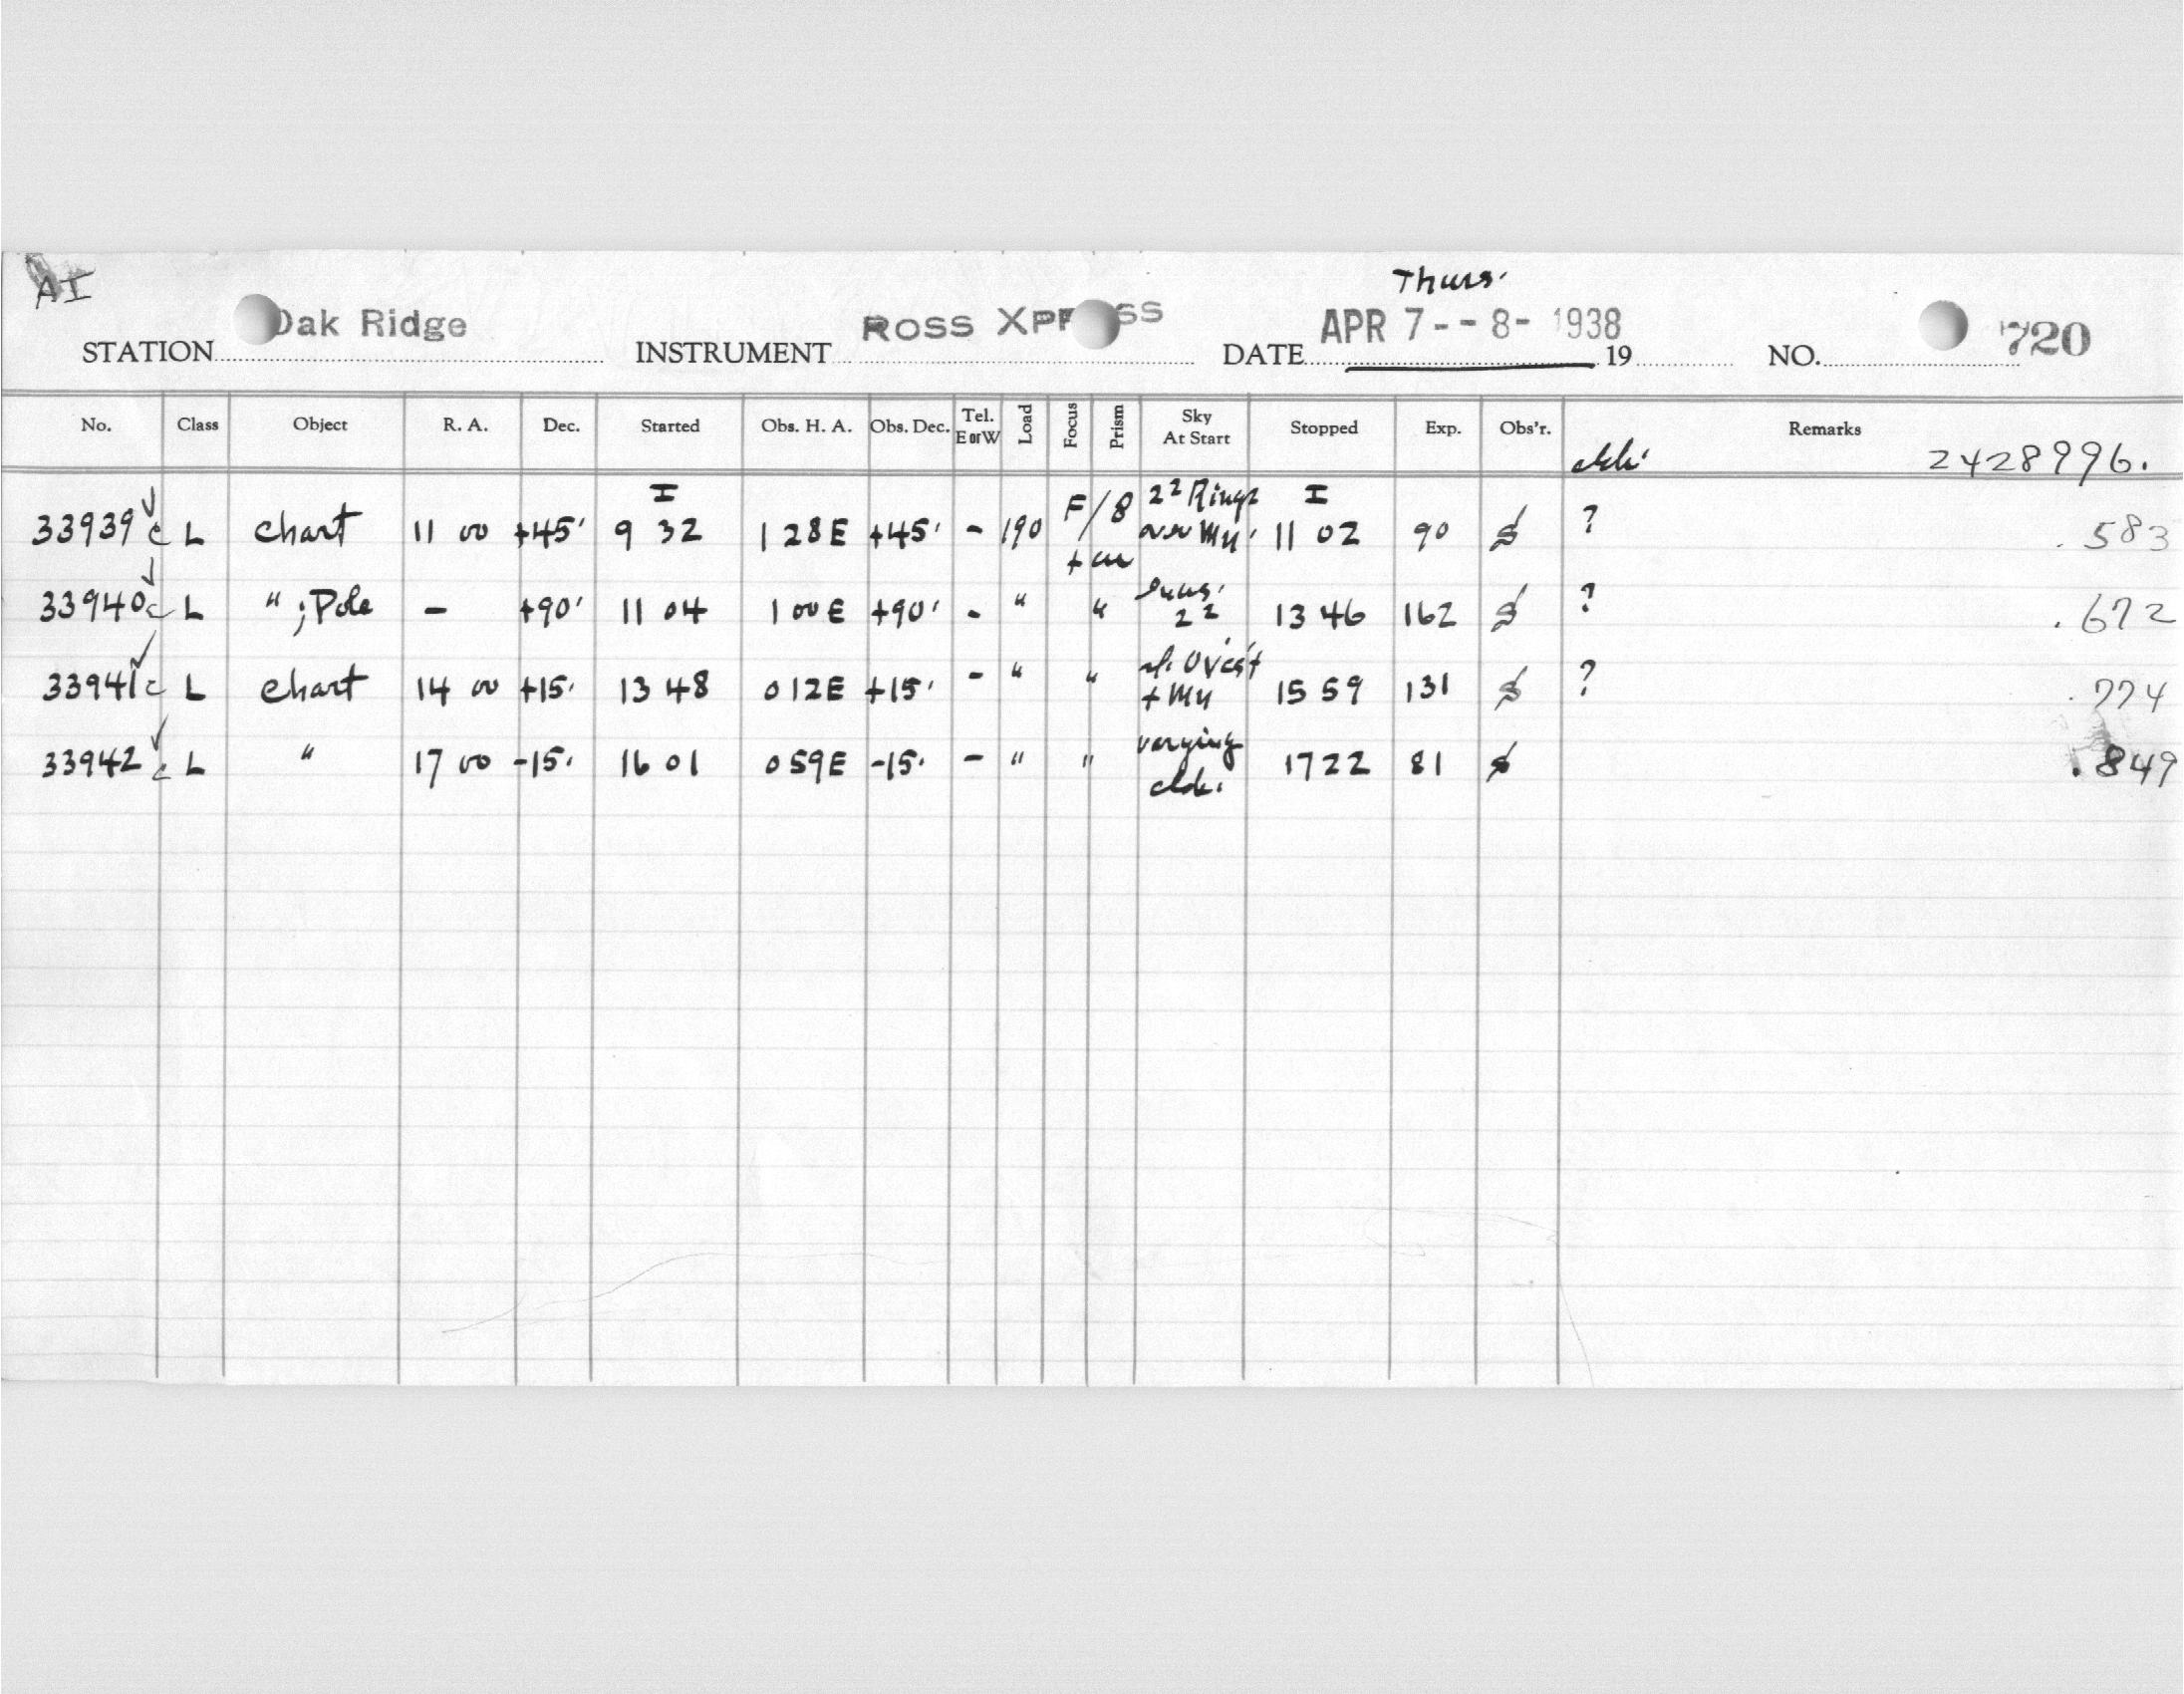 AI
Thurs.
STATION Oak Ridge INSTRUMENT ROSS XPRESS DATE APR 7--8- 1938 19 NO. 720
No. Class Object R. A. Dec. Started Obs. H. A. Obs. Dec. Tel. E or W Load Focus Prism Sky At Start Stopped Exp. Obs'r. Remarks
2428996.
I I
33939 c L chart 11 00 +45° 9 32 1 28E +45° - 190 F/8 2² Rings 11 02 90 ? .583
33940 c L " ; Pole - +90° 11 04 1 00E +90° - " " 2² 13 46 162 ? .672
33941 c L chart 14 00 +15° 13 48 0 12E +15° - " " 15 59 131 ? .774
33942 c L " 17 00 -15° 16 01 0 59E -15° - " " varying 17 22 81 .849